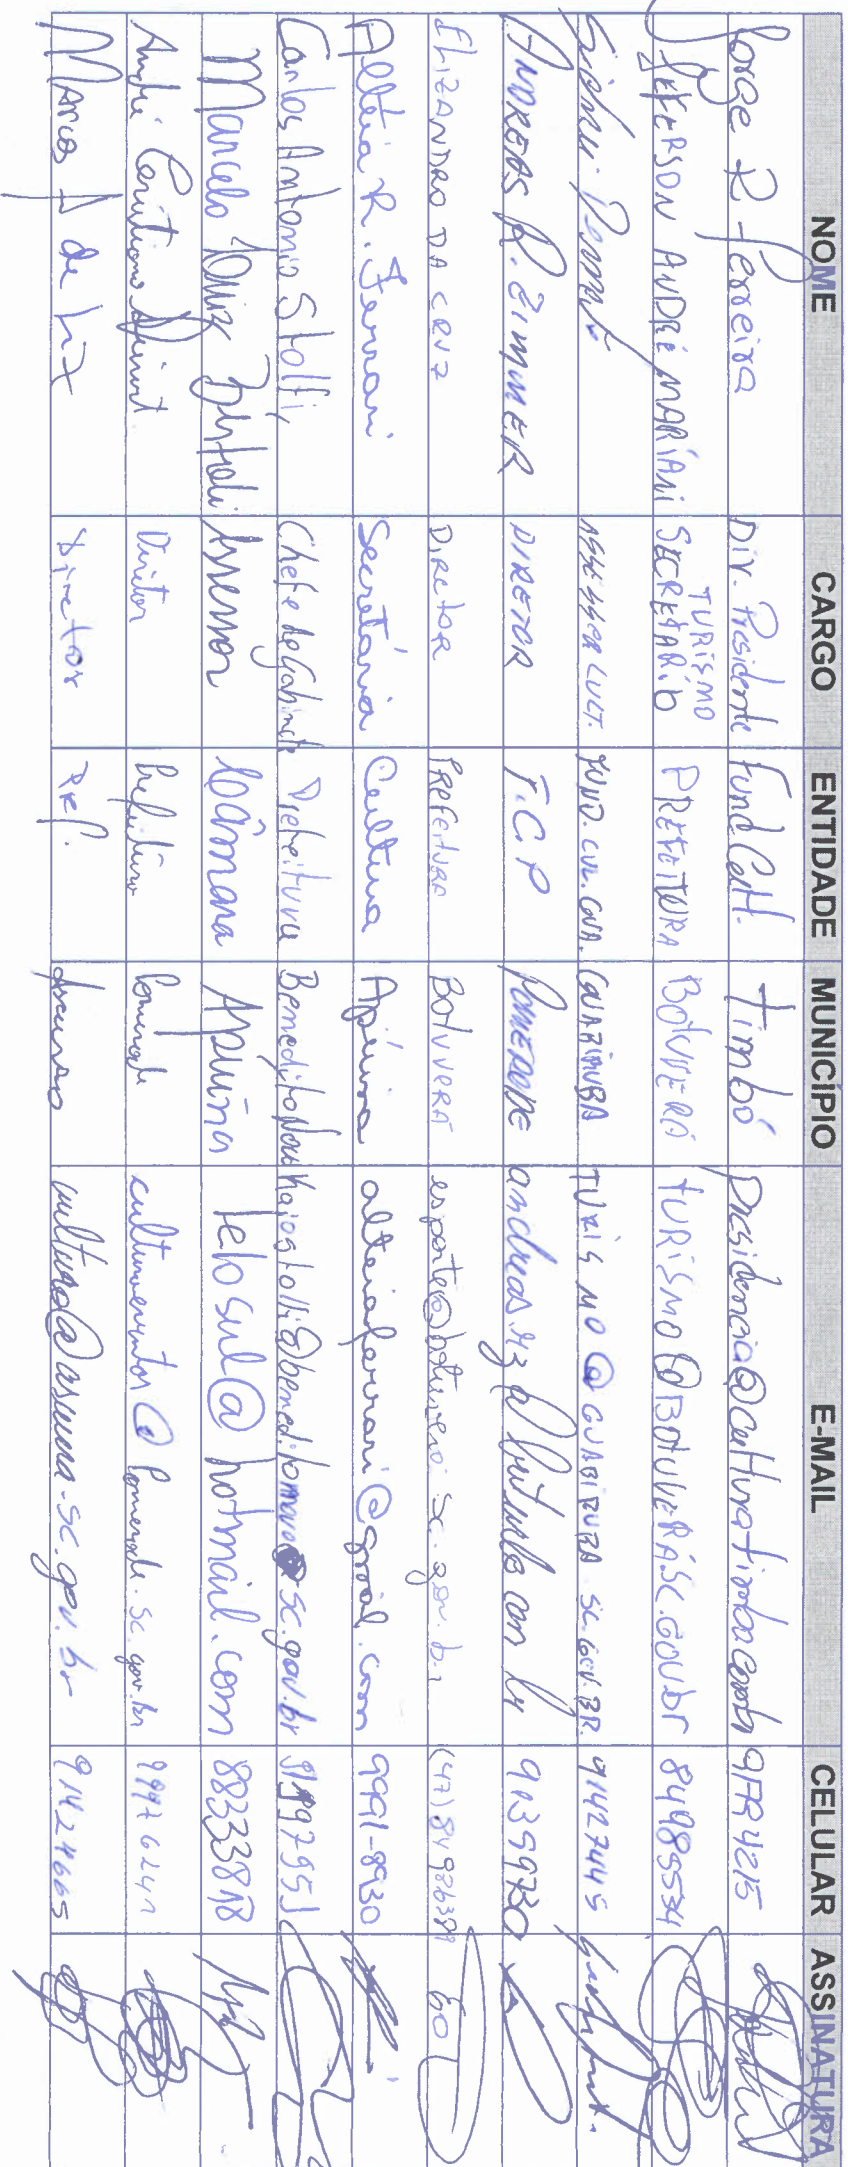 NOME CARGO ENTIDADE MUNICÍPIO E-MAIL CELULAR ASSINATURA
Jorge R Ferreira Dir. Presidente Fund. Cult. Timbó presidencia@culturatimbo.com.br
JEFERSON ANDRÉ MARIANI SECRETARIO TURISMO PREFEITURA BOTUVERÁ TURISMO@BOTUVERÁ.SC.GOV.br 84985534
ASSESSOR CULT. FUND. CUL. GUA. GUABIRUBA TURISMO@GUABIRUBA.SC.GOV.BR. 91427445
ANDREAS R. ZIMMER DIRETOR F.C.P POMERODE 91399730
ELIZANDRO DA CRUZ Diretor Prefeitura Botuverá esporte@botuvera.sc.gov.br (47)
Altéia R. Ferrari Secretária Cultura Apiúna alteiaferrari@gmail.com 9991-8930
Carlos Antonio Stolfi, Chefe de Gabinete Prefeitura Benedito Novo
Marcelo Luiz Assessor Câmara Apiúna telosul@hotmail.com 88333818
André Cristiano Diretor Prefeitura Pomerode 99976241
Marcos A de Diretor Pref. Ascurra cultura@ascurra.sc.gov.br 91424665